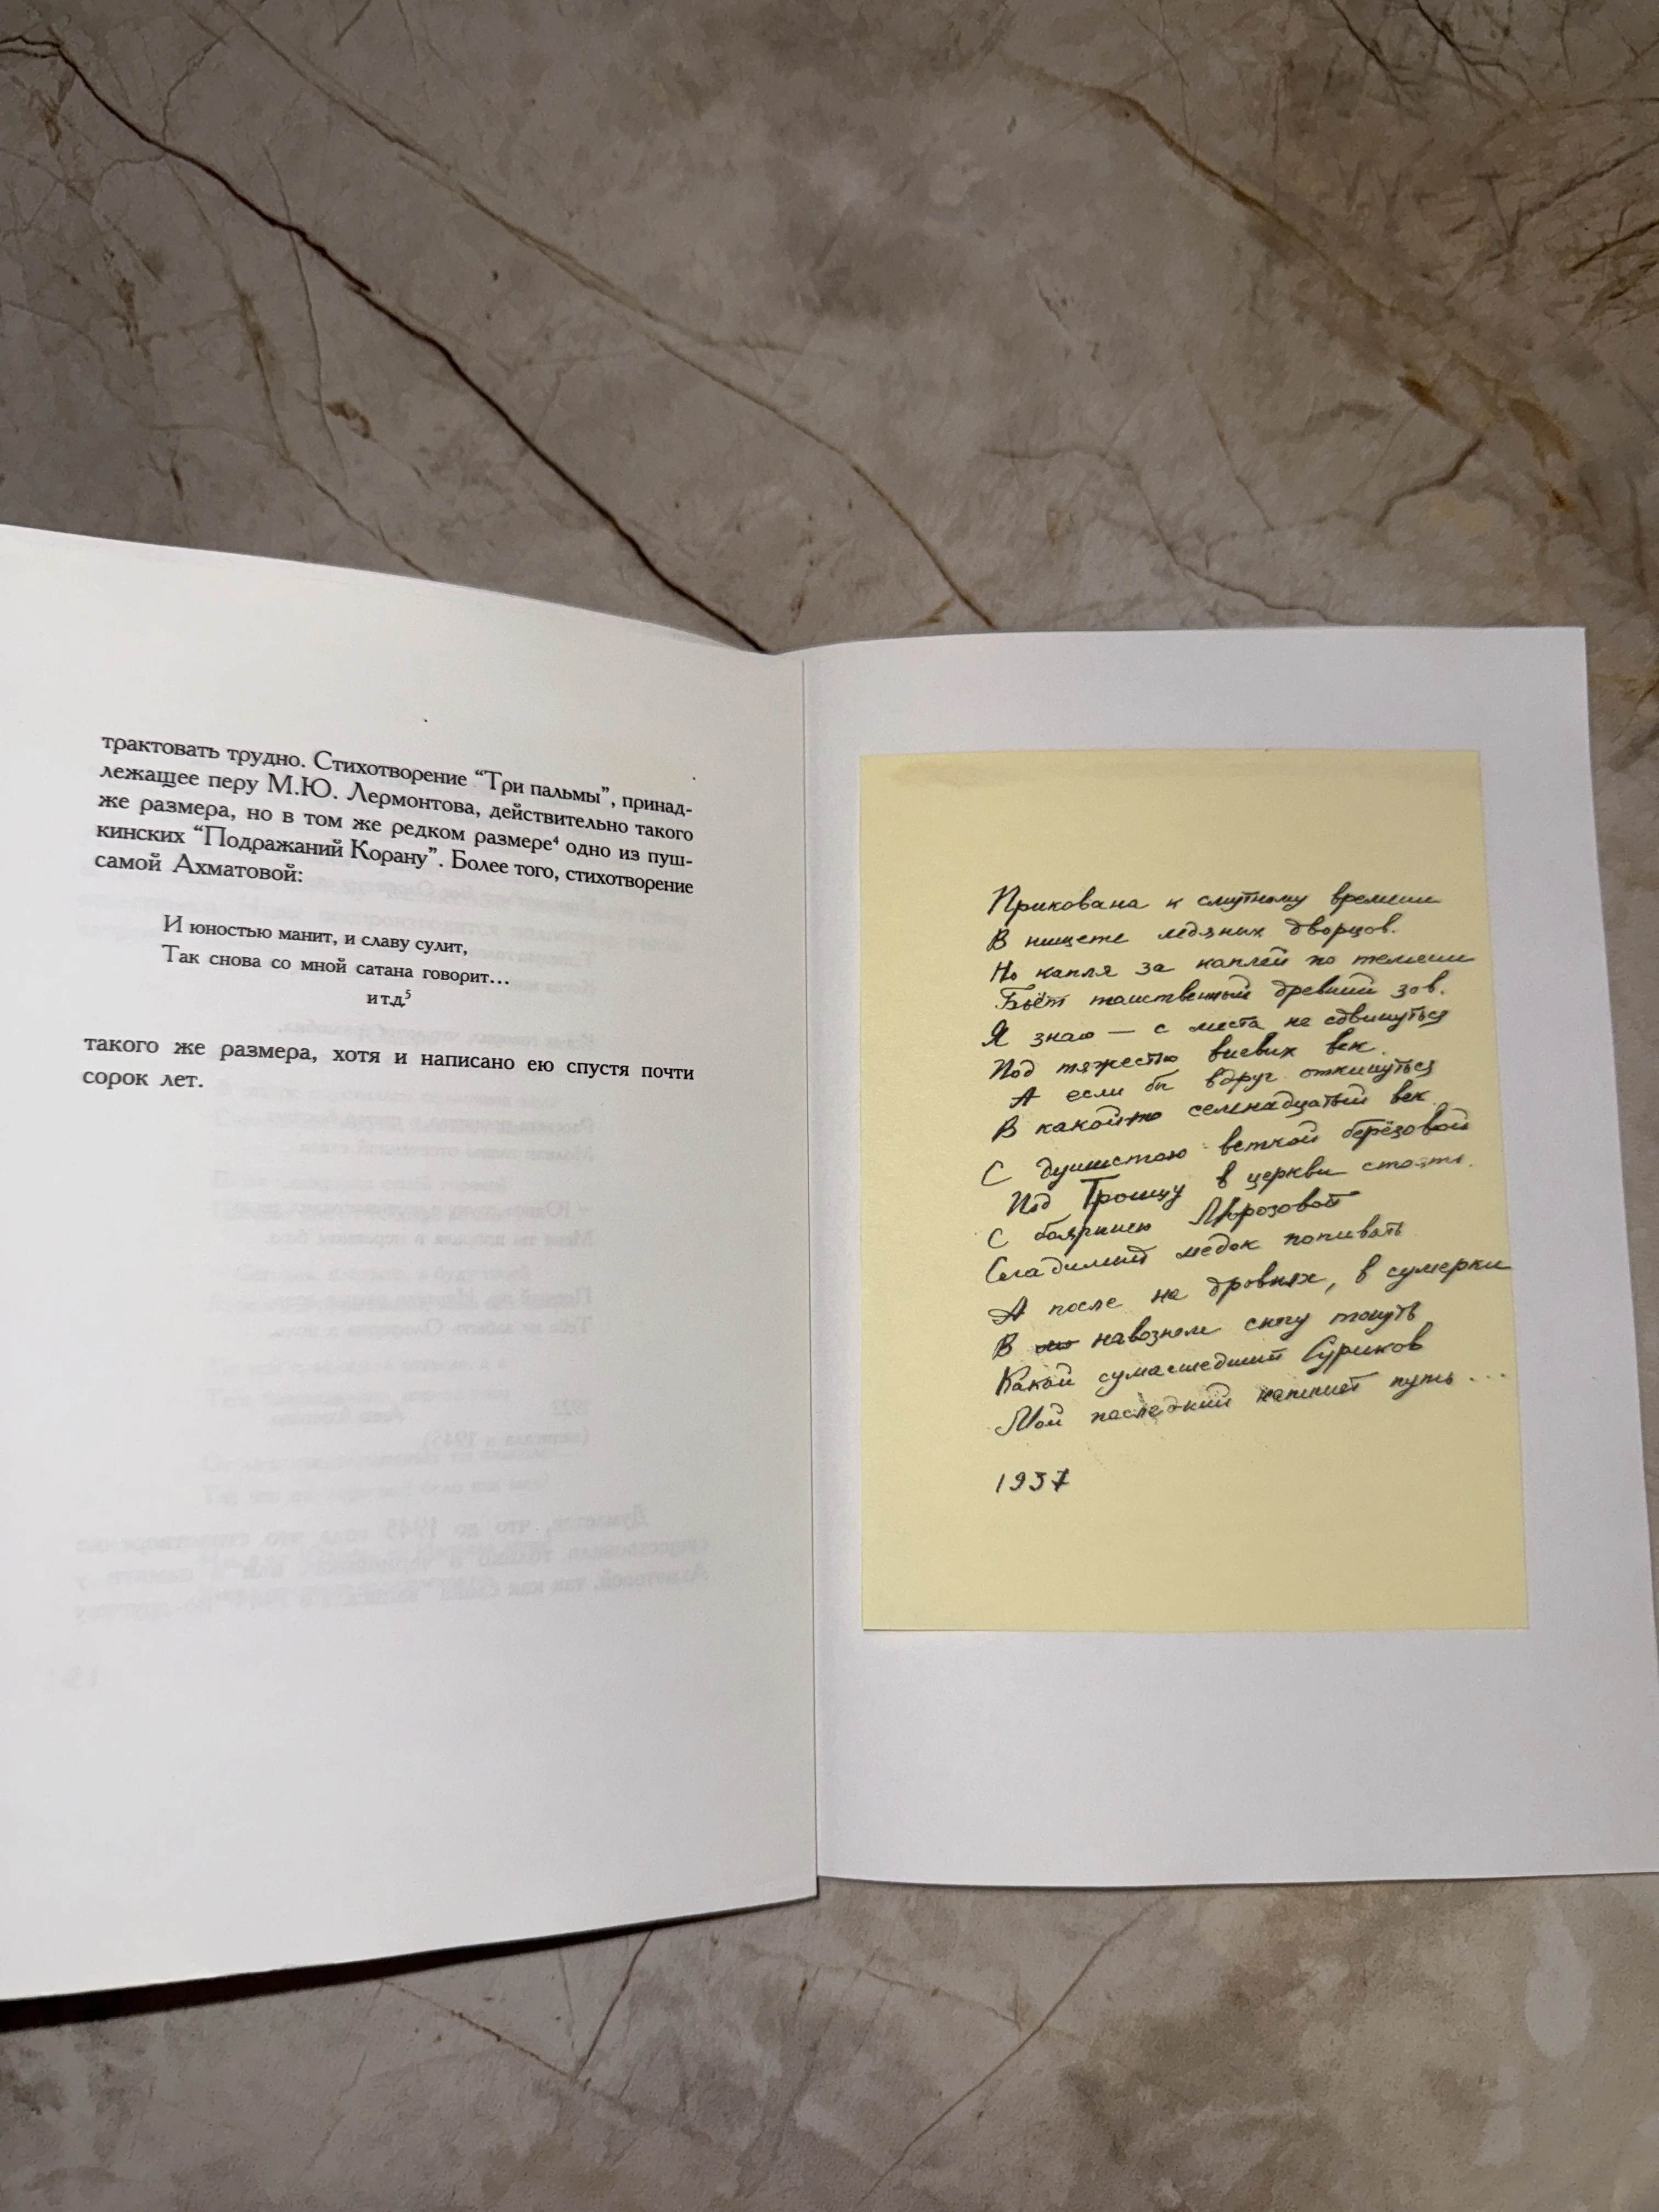 трактовать трудно. Стихотворение “Три пальмы”, принад-
лежащее перу М.Ю. Лермонтова, действительно такого
же размера, но в том же редком размере⁴ одно из пуш-
кинских “Подражаний Корану”. Более того, стихотворение
самой Ахматовой:
И юностью манит, и славу сулит,
Так снова со мной сатана говорит...
и т.д.⁵
такого же размера, хотя и написано ею спустя почти
сорок лет.
Прикована к смутному времени
В нищете ледяных дворцов.
Но капля за каплей по темени
Бьёт таинственный древний зов.
Я знаю — с места не сдвинуться
Под тяжестью виевых век.
А если бы вдруг откинуться
В какой-то семнадцатый век.
С душистою веткой берёзовой
Под Троицу в церкви стоять.
С боярынею Морозовой
Сладимый медок попивать
А после на дровнях, в сумерки
В навозном снегу тонуть
Какой сумасшедший Суриков
Мой последний напишет путь...
1937